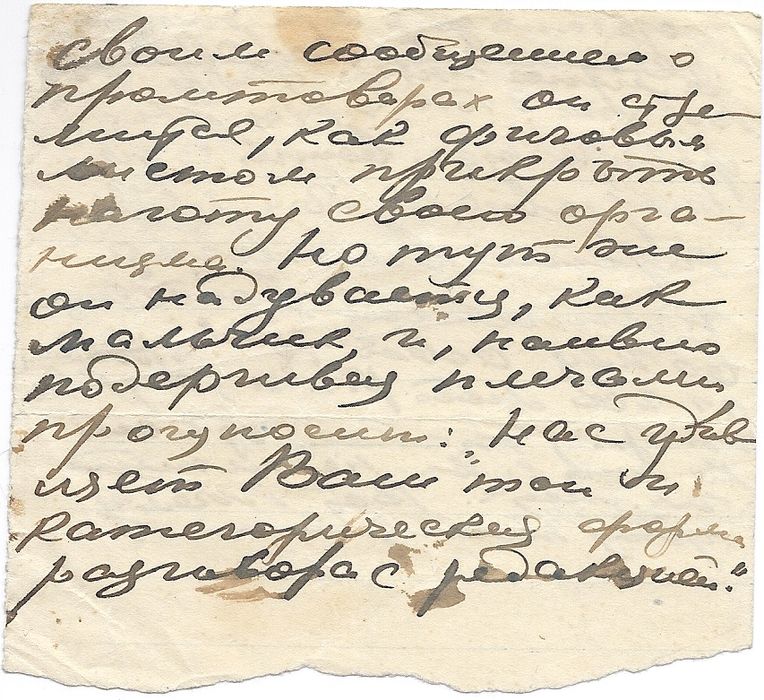 своим сообщением о
промтоварах он стре-
мится, как фиговым
листом прикрыть
наготу своего орга-
низма. Но тут же
он надувается, как
мальчик, и, наивно
подергивая плечами
произносит: "Нас удив
ляет Ваш тон и
категорическая форма
разговора с редакцией."